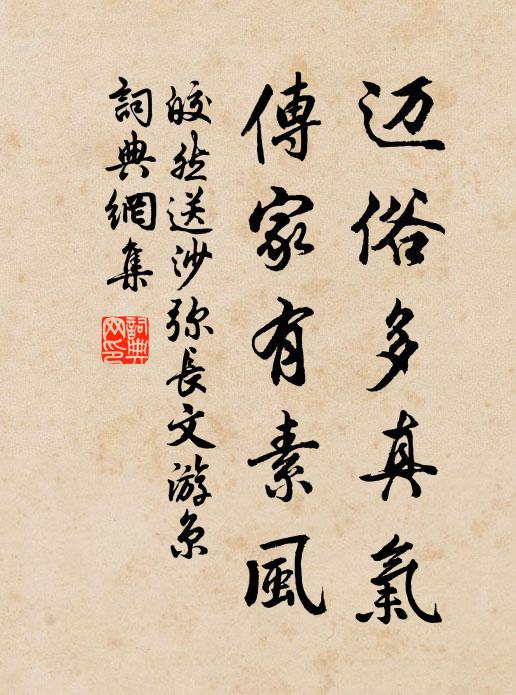 迈俗多真氣
傳家有素風
皎然送沙弥長文游京
詞典網集
詞典網印